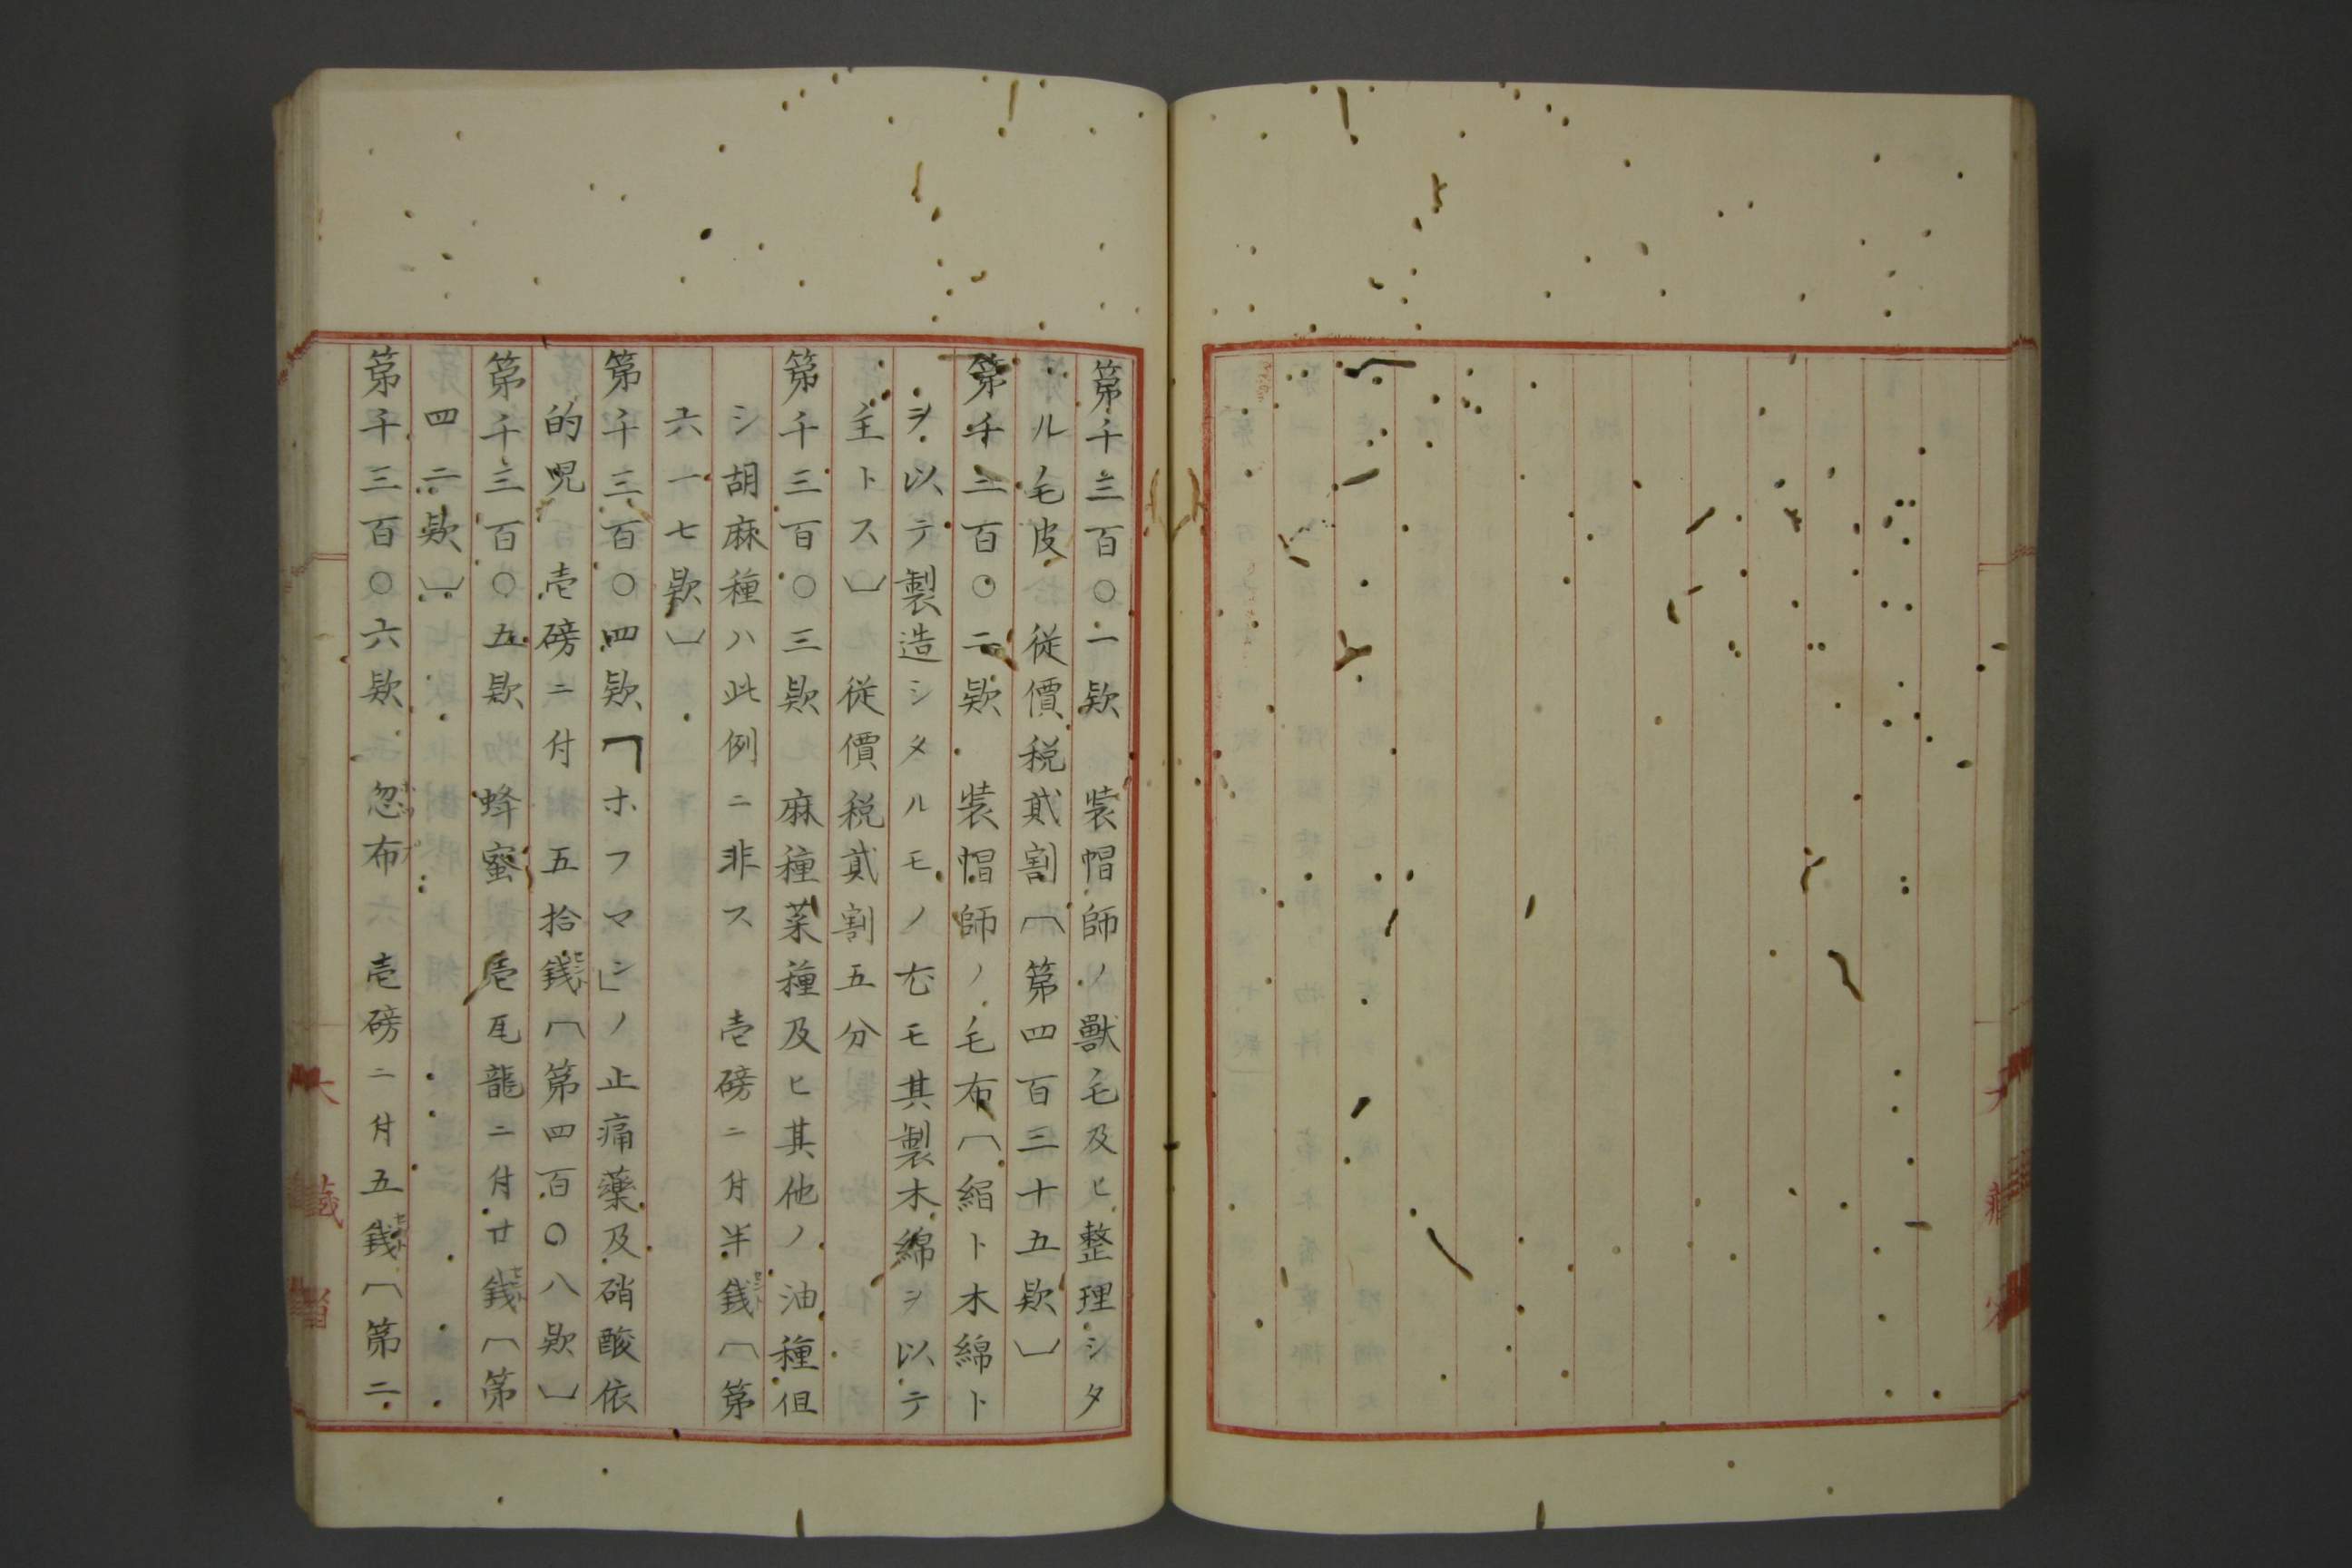 第千三百〇一欵　装帽師ノ獣毛及ヒ整理シタ
ル毛皮　従價税貳割〔第四百三十五欵〕
第千三百〇二欵　装帽師ノ毛布〔絹ト木綿ト
ヲ以テ製造シタルモノ尤モ其製木綿ヲ以テ
主トス〕　従價税貳割五分
第千三百〇三欵　麻種菜種及ヒ其他ノ油種但
シ胡麻種ハ此例ニ非ス　壱磅ニ付半錢〔第
六一七欵〕
第千三百〇四欵「ホフマン」ノ止痛藥及硝酸依
的呪　壱磅ニ付　五拾錢〔第四百〇八欵〕
第千三百〇五欵　蜂蜜　壱瓦龍ニ付廿錢〔第
四二欵〕
第千三百〇六欵　忽布　壱磅ニ付五錢〔第二
大藏省